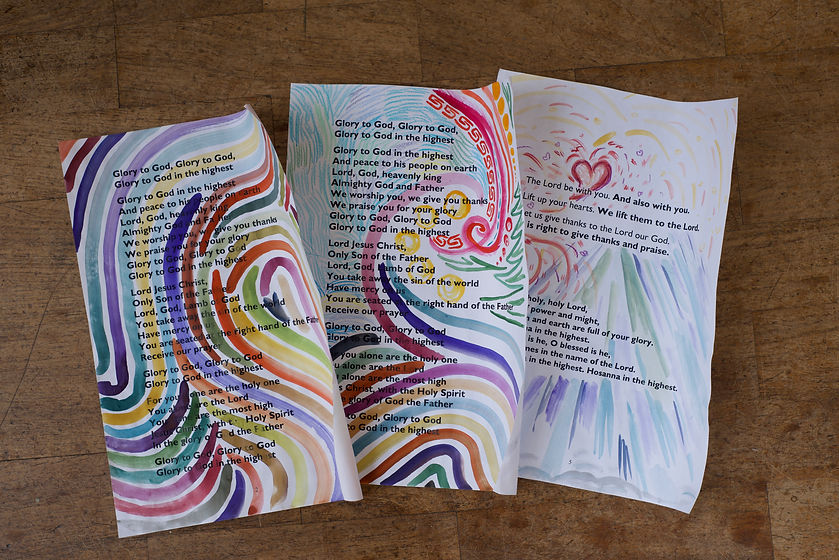 Glory to God, Glory to God,
Glory to God in the highest
Glory to God in the highest
And peace to his people on earth
Lord, God, heavenly king
Almighty God and Father
We worship you, we give you thanks
We praise you for your glory
Glory to God, Glory to God
Glory to God in the highest
Lord Jesus Christ,
Only Son of the Father
Lord, God, Lamb of God
You take away the sin of the world
Have mercy on us
You are seated at the right hand of the Father
Receive our prayer
Glory to God, Glory to God
Glory to God in the highest
For you alone are the holy one
You alone are the Lord
You alone are the most high
Jesus Christ, with the Holy Spirit
In the glory of God the Father
Glory to God, Glory to God
Glory to God in the highest
Glory to God, Glory to God,
Glory to God in the highest
Glory to God in the highest
And peace to his people on earth
Lord, God, heavenly king
Almighty God and Father
We worship you, we give you thanks
We praise you for your glory
Glory to God, Glory to God
Glory to God in the highest
Lord Jesus Christ,
Only Son of the Father
Lord, God, Lamb of God
You take away the sin of the world
Have mercy on us
You are seated at the right hand of the Father
Receive our prayer
Glory to God, Glory to God
Glory to God in the highest
you alone are the holy one
You alone are the Lord
You alone are the most high
Christ, with the Holy Spirit
glory of God the Father
to God, Glory to God
to God in the highest
The Lord be with you. And also with you.
Lift up your hearts. We lift them to the Lord.
Let us give thanks to the Lord our God.
is right to give thanks and praise.
holy, holy Lord,
power and might,
and earth are full of your glory.
in the highest.
is he, O blessed is he,
in the name of the Lord.
in the highest. Hosanna in the highest.
5